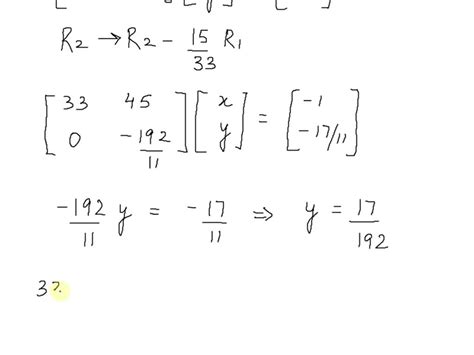 R₂ → R₂ - 15/33 R₁
[33 45; 0 -192/11] [x; y] = [-1; -17/11]
-192/11 y = -17/11 ⇒ y = 17/192
3